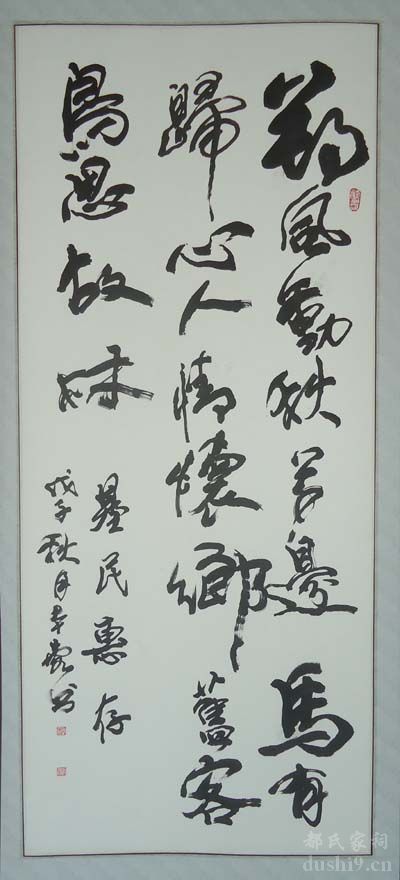 朔風動秋草邊馬有
歸心人情懷鄉舊客
鳥思故林
民惠存
戊子秋月
都氏家祠
dushi9.cn